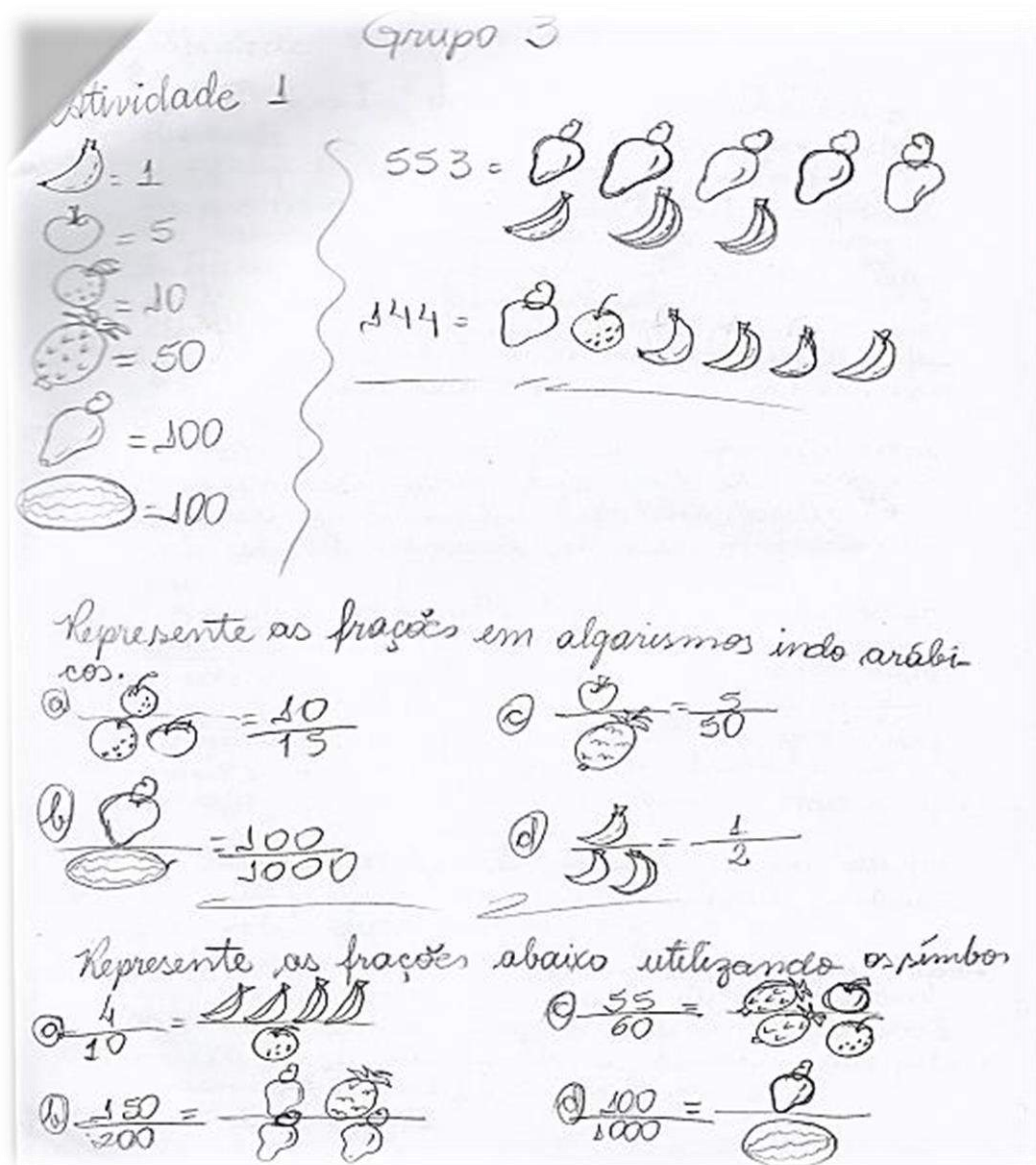 Grupo 3
Atividade 1
= 1
= 5
= 10
= 50
= 100
= 100
553 =
144 =
Represente as frações em algarismos indo arábi-
cos.
a) = 10/15
c) = 5/50
b) = 100/1000
d) = 1/2
Represente as frações abaixo utilizando os símbos
a) 4/10 =
c) 55/60 =
b) 150/200 =
d) 100/1000 =